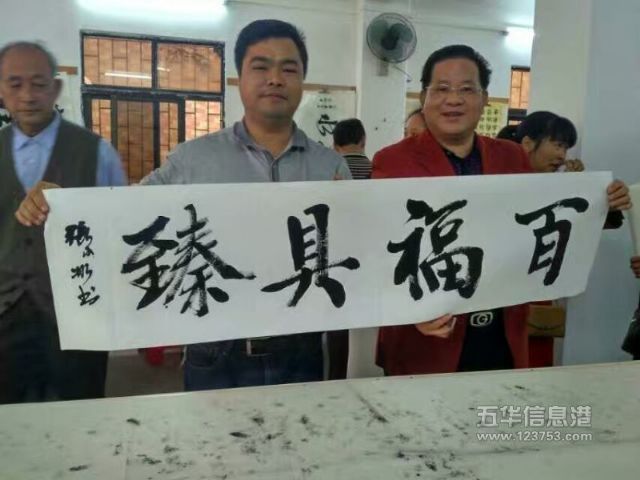 百福具臻
五华信息港
www.123753.com